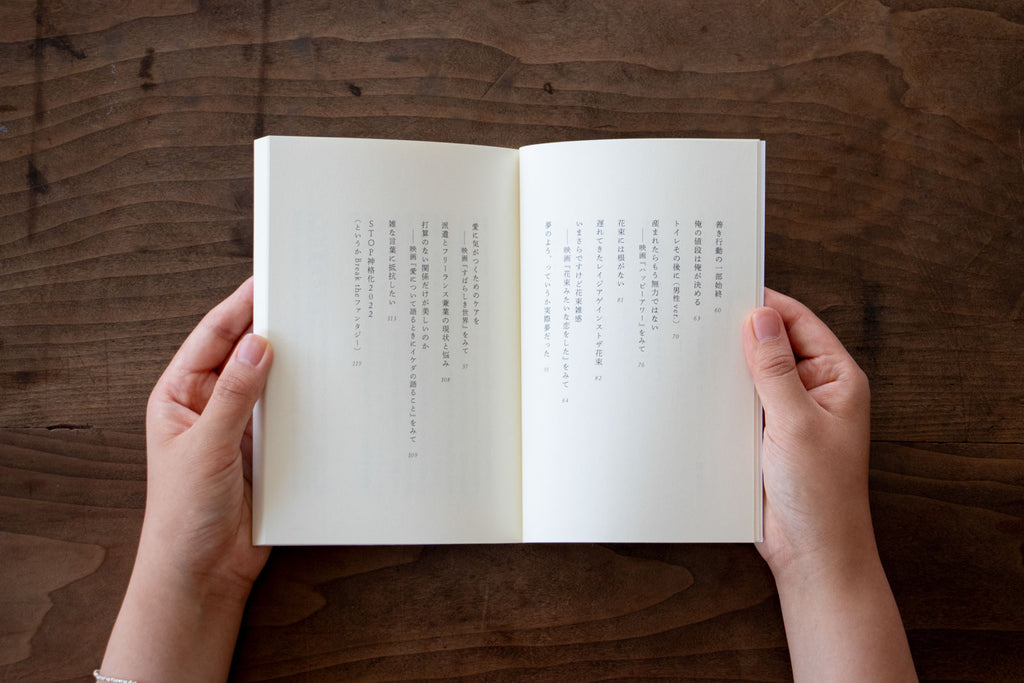 善き行動の一部始終 60
俺の値段は俺が決める 63
トイレその後に(男性ver.) 70
産まれたらもう無力ではない
――映画『ハッピーアワー』をみて 76
花束には根がない 81
遅れてきたレイジアゲインストザ花束 82
いまさらですけど花束雑感
――映画『花束みたいな恋をした』をみて 84
夢のよう、っていうか実際夢だった
愛に気がつくためのケアを
――映画『すばらしき世界』をみて 97
派遣とフリーランス兼業の現状と悩み 108
打算のない関係だけが美しいのか
――映画『愛について語るときにイケダの語ること』をみて 109
雑な言葉に抵抗したい 113
STOP神格化2022
(というかBreak theファンタジー) 119